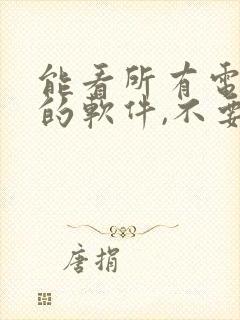 能看所有電
的軟件,不要
唐捐